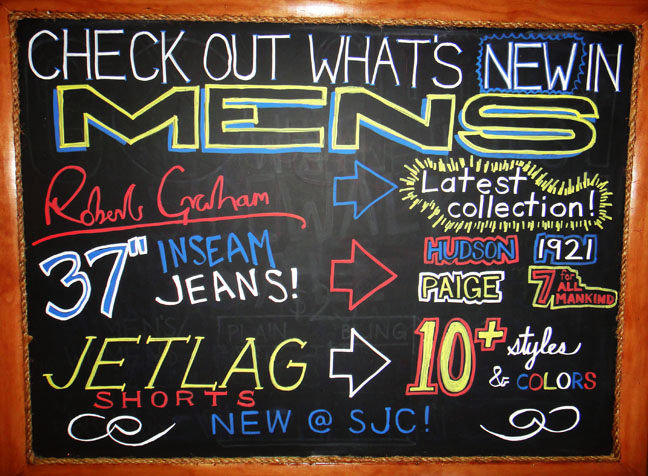 CHECK OUT WHAT'S NEW IN
MENS
Robert Graham → Latest collection!
37" INSEAM JEANS! → HUDSON 1921
PAIGE 7 for ALL MANKIND
JETLAG SHORTS → 10+ styles & COLORS
NEW @ SJC!